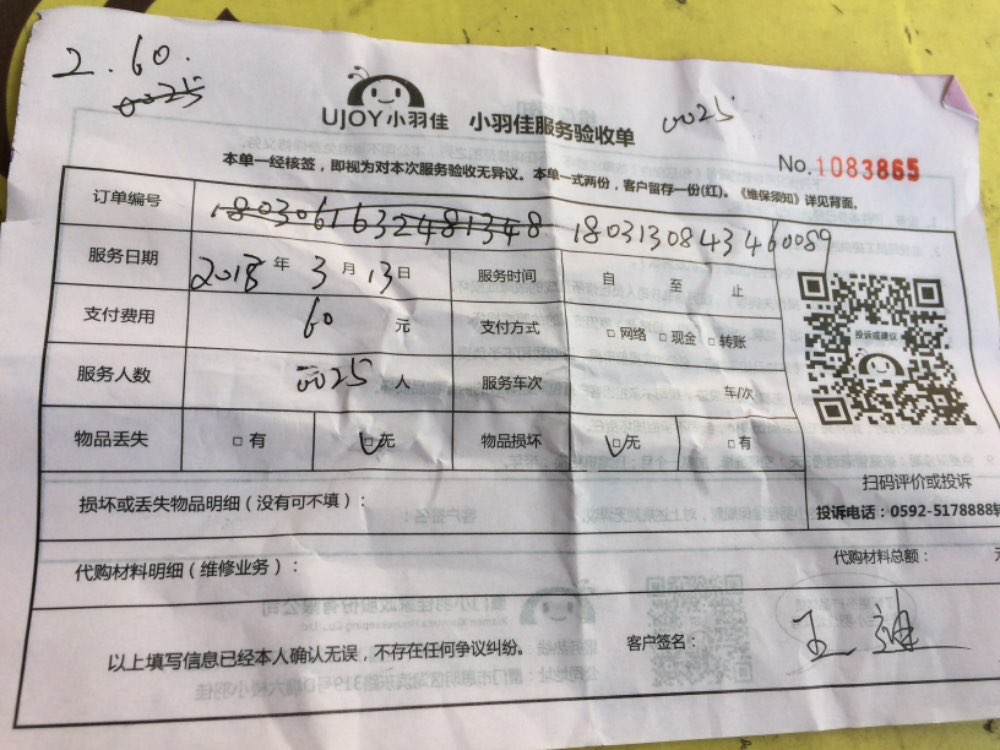 2.60.
0025
UJOY小羽佳 小羽佳服务验收单 0025
No.1083865
本单一经核签，即视为对本次服务验收无异议。本单一式两份，客户留存一份(红)。《维保须知》详见背面。
订单编号 180306163248 1348 180313084346 0089
服务日期 2018年3月13日 服务时间 自 至 止
支付费用 60 元 支付方式 □网络 □现金 □转账
投诉或建议
服务人数 0025 人 服务车次 车/次
物品丢失 □有 ☑无 物品损坏 ☑无 □有
扫码评价或投诉
损坏或丢失物品明细（没有可不填）：
投诉电话：0592-5178888转
代购材料明细（维修业务）： 代购材料总额：
以上填写信息已经本人确认无误，不存在任何争议纠纷。 客户签名： 王迪